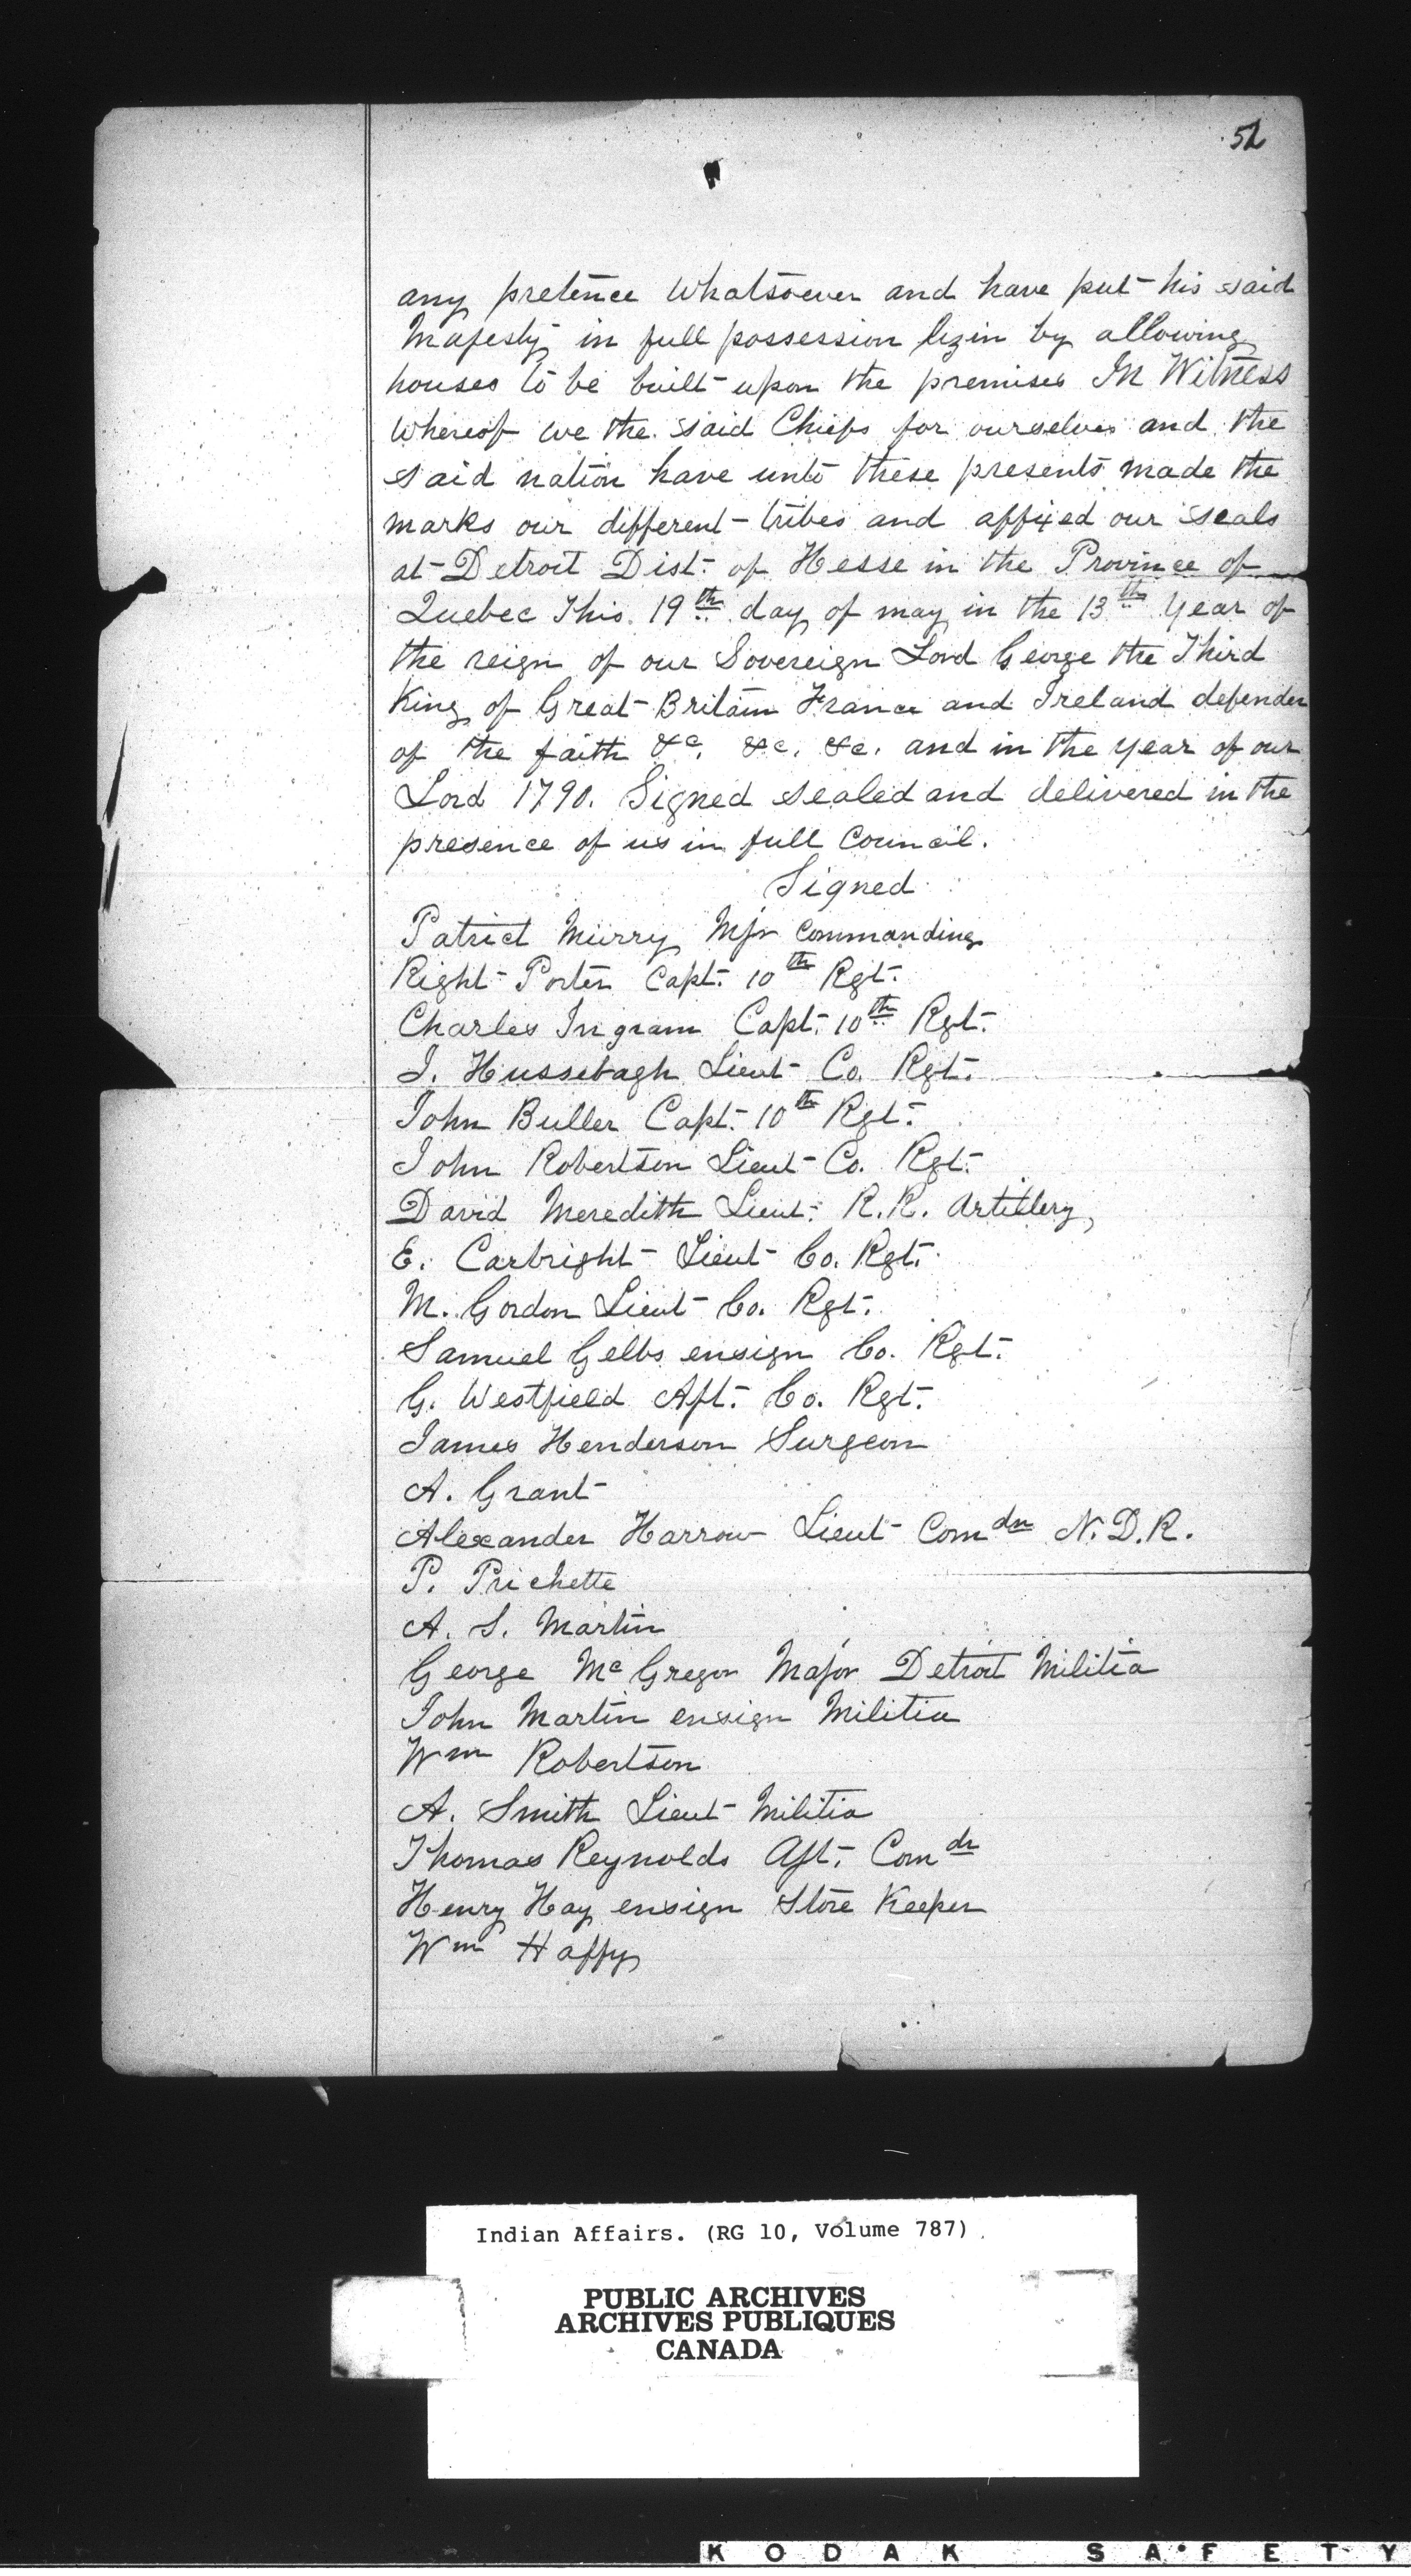 52
any pretence whatsoever and have put his said
Majesty in full possession by allowing
houses to be built upon the premises In Witness
whereof we the said Chiefs for ourselves and the
said nation have unto these presents made the
marks our different tribes and affixed our seals
at Detroit Dist. of Hesse in the Province of
Quebec This 19th day of may in the 13th year of
the reign of our Sovereign Lord George the Third
King of Great Britain France and Ireland defender
of the faith &c. &c. &c. and in the year of our
Lord 1790. Signed sealed and delivered in the
presence of us in full Council.
Signed
Patrict Murry Mjr Commanding
Right Porter Capt. 10th Rgt.
Charles Ingram Capt. 10th Rgt.
J. Hussebagh Lieut Co. Rgt.
John Buller Capt. 10th Rgt.
John Robertson Lieut Co. Rgt.
David Meredith Lieut. R.R. Artillery,
E. Cartright Lieut Co. Rgt.
M. Gordon Lieut Co. Rgt.
Samuel Gelbs ensign Co. Rgt.
G. Westfield Ajt. Co. Rgt.
James Henderson Surgeon
A. Grant
Alexander Harrow Lieut Comdr N.D.R.
P. Prichette
A. S. Martin
George McGregor Major Detroit Militia
John Martin ensign Militia
Wm Robertson
A. Smith Lieut Militia
Thomas Reynolds Ajt. Comdr
Henry Hay ensign Store Keeper
Wm Haffy
Indian Affairs. (RG 10, Volume 787)
PUBLIC ARCHIVES
ARCHIVES PUBLIQUES
CANADA
KODAK SAFETY